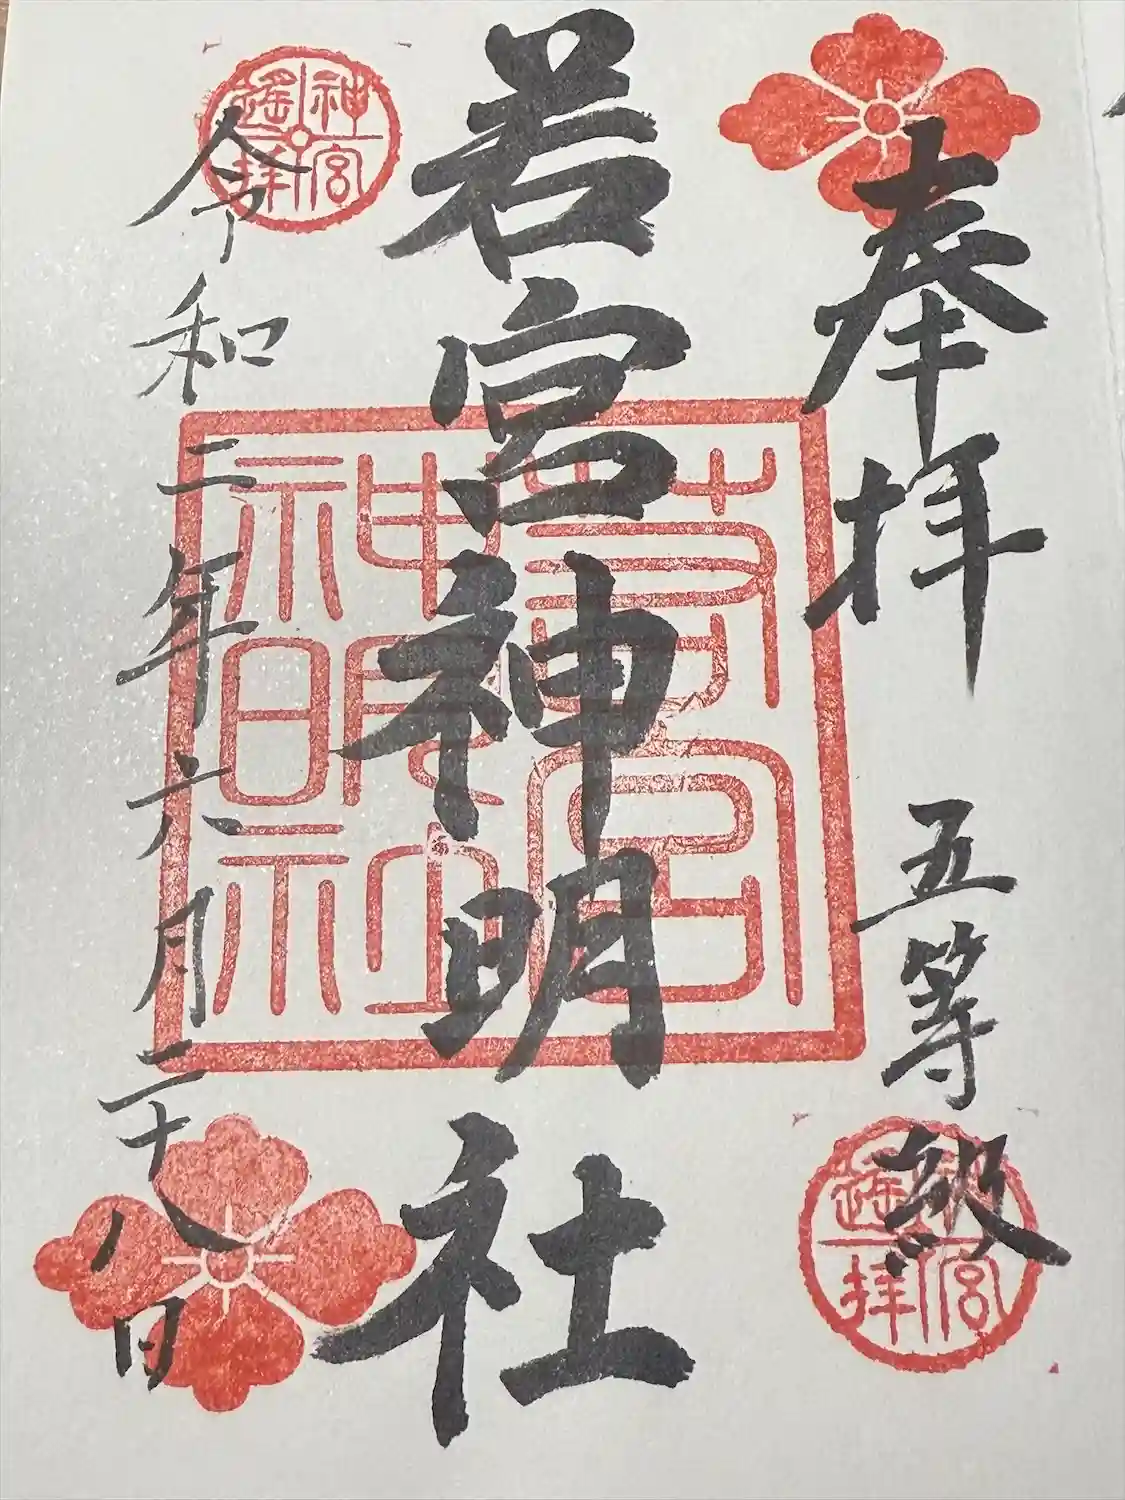 奉拝
五等級
神宮
遙拝
若宮神明社
若宮
神明社
神宮
遙拝
令和二年六月二十八日